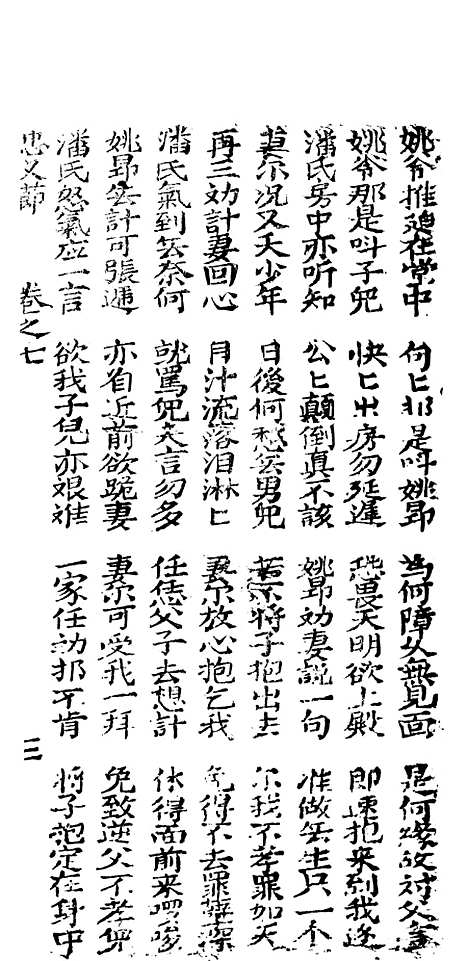 姚爷推迫在堂中 句匕却是叫姚昂 為何障父無見面 是何緣故討父
姚爷那是叫子兒 快匕出房勿延遲 恐畏天明欲上殿 即速抱来到我
潘氏房中亦听知 公匕顛倒真不該 姚昂劝妻説一句 准做丢生只一个
尔况又夭少年 日後何愁丢男兒 若不将子抱出去 尔我不孝罪如天
再三劝計妻回心 目汁流落泪淋匕 妻尔放心抱乞我 免得不去罪孽深
潘氏氣到丢奈何 就罵兒夫言勿多 任恁父子去想計 休得面前来啰唆
姚昂丢計可張遲 亦着近前欲跪妻 妻尔可受我一拜 免致逆父不孝兒
潘氏怒氣应一言 欲我子兒亦艰难 一家任劝却不肯 将子抱定在身中
忠义節 卷之七 三